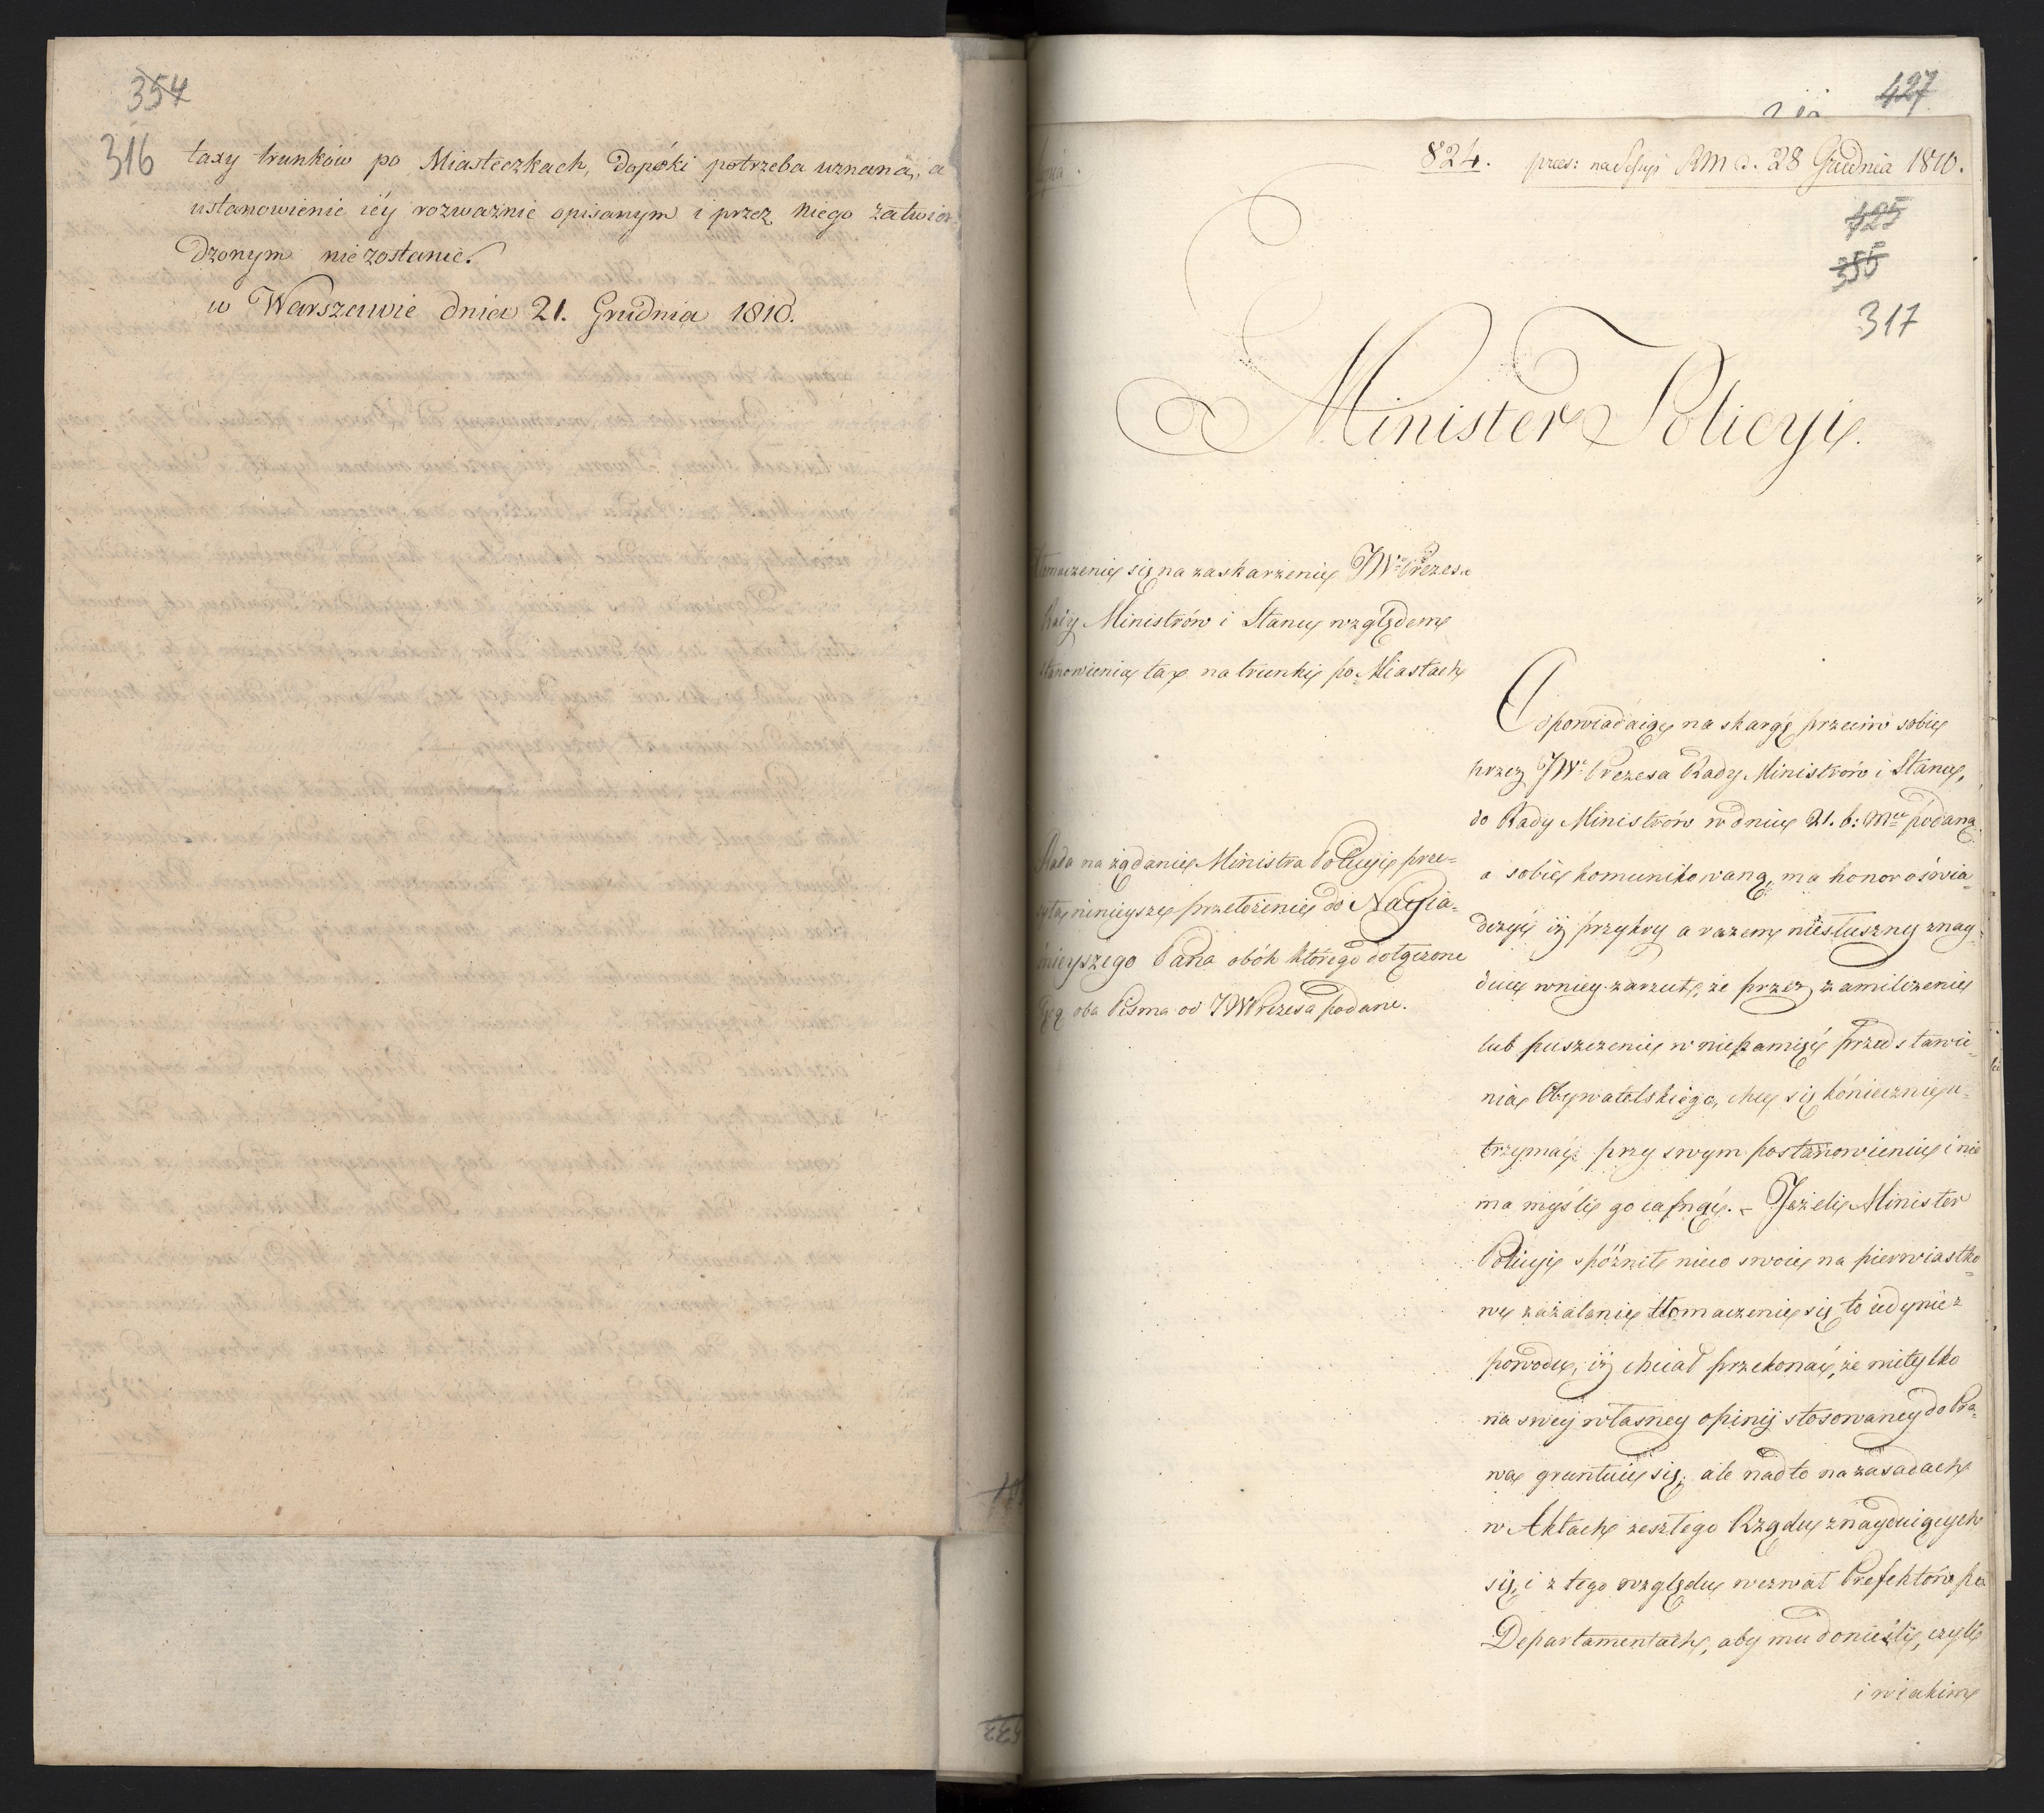 354
316
taxy trunków po Miasteczkach, dopóki potrzeba uznaną, a
ustanowienie iéy rozważnie opisanym i przez niego zatwier-
dzonym nie zostanie.
w Warszawie dnia 21. Grudnia 1810.
427
824. praes: na Sessyi RM d. 28 Grudnia 1810.
425
355
317
Minister Policyi.
Tłomaczenie się na zaskarżenie JW Prezesa
Rady Ministrów i Stanu względem
stanowienia tax na trunki po Miastach
Rada na żądanie Ministra Policyi prze=
syła ninieysze przełożenie do Nayia=
śnieyszego Pana obók którego dołączone
są oba Pisma od JWPrezesa podane.
Odpowiadaiąc na skargę przeciw sobie
przez JW Prezesa Rady Ministrów i Stanu,
do Rady Ministrów w dniu 21. b: mca podaną
a sobie komunikowaną, ma honor oświa=
dczyć iż przykry a razem niesłuszny znay=
duie w niey zarzut, że przez zamilczenie
lub puszczenie w niepamięć przedstawie=
nia Obywatelskiego, chce się koniecznie u=
trzymać przy swym postanowieniu i nie
ma myśli go cofnąć. - Jeżeli Minister
Policyi spóźnił nieco swoie na pierwiastko=
we zażalenie tłomaczenie się to iedynie z
powodu, iż chciał przekonać, że nietylko
na swey własney opinij stosowaney do Pra=
wa gruntuie się, ale nadto na zasadach
w Aktach zeszłego Rządu znayduiących
się, i z tego względu wezwał Prefektów po
Departamentach, aby mu donieśli, czyli
i w iakim